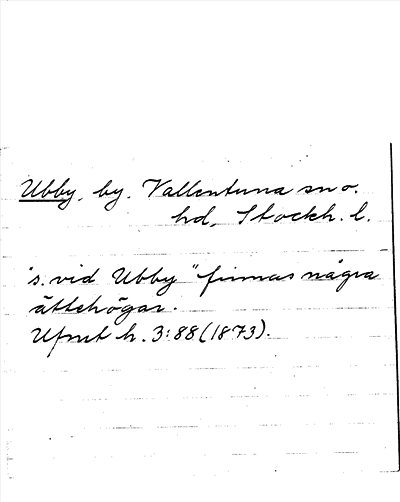 Ubby, by. Vallentuna sn o.
hd, Stockh. l.
"s. vid Ubby" finnas några
ättehögar.
Upmt h. 3:88 (1873).